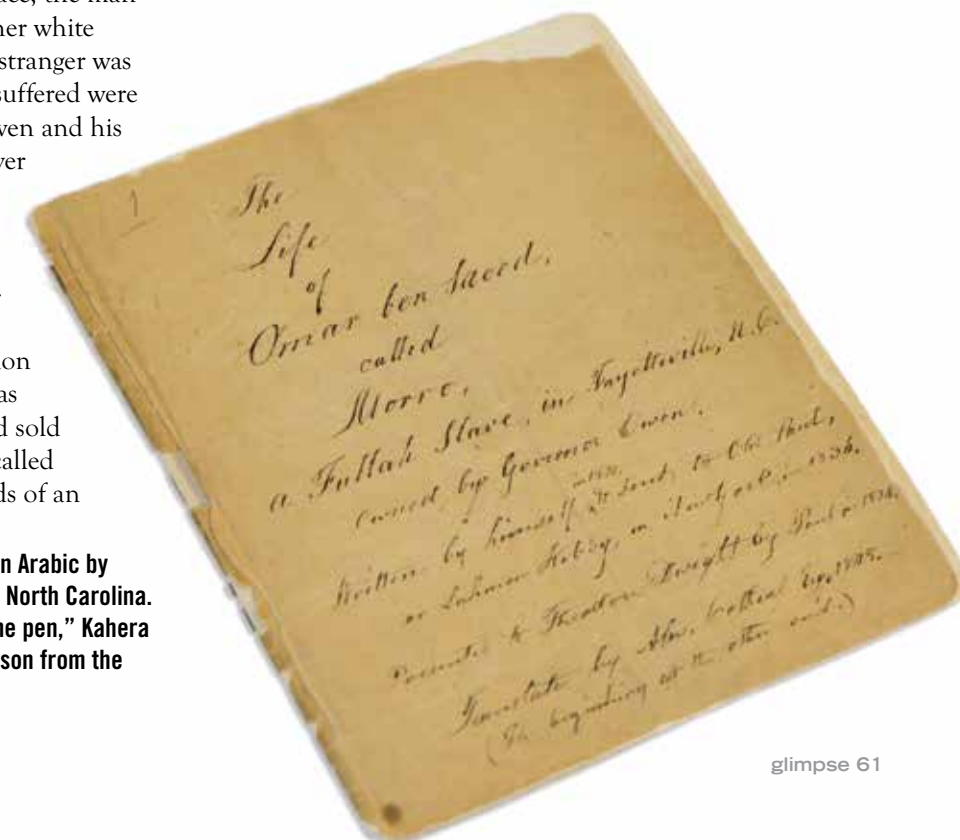 ace, the man
her white
stranger was
suffered were
wen and his
ver
ion
as
d sold
called
ds of an
n Arabic by
North Carolina.
he pen,” Kahera
son from the
1
The
Life
of
Omar ben Saeed,
called
Morro,
a Fullah Slave, in Fayetteville, N.C.
owned by Governor Owen,
Written by himself in 1831 & sent to Old Paul,
or Lahmen Kebby, in New York, in 1836.
Presented to Theodore Dwight by Paul in 1836.
Translated by Esq., 1848.
(The beginning at the other end.)
glimpse 61